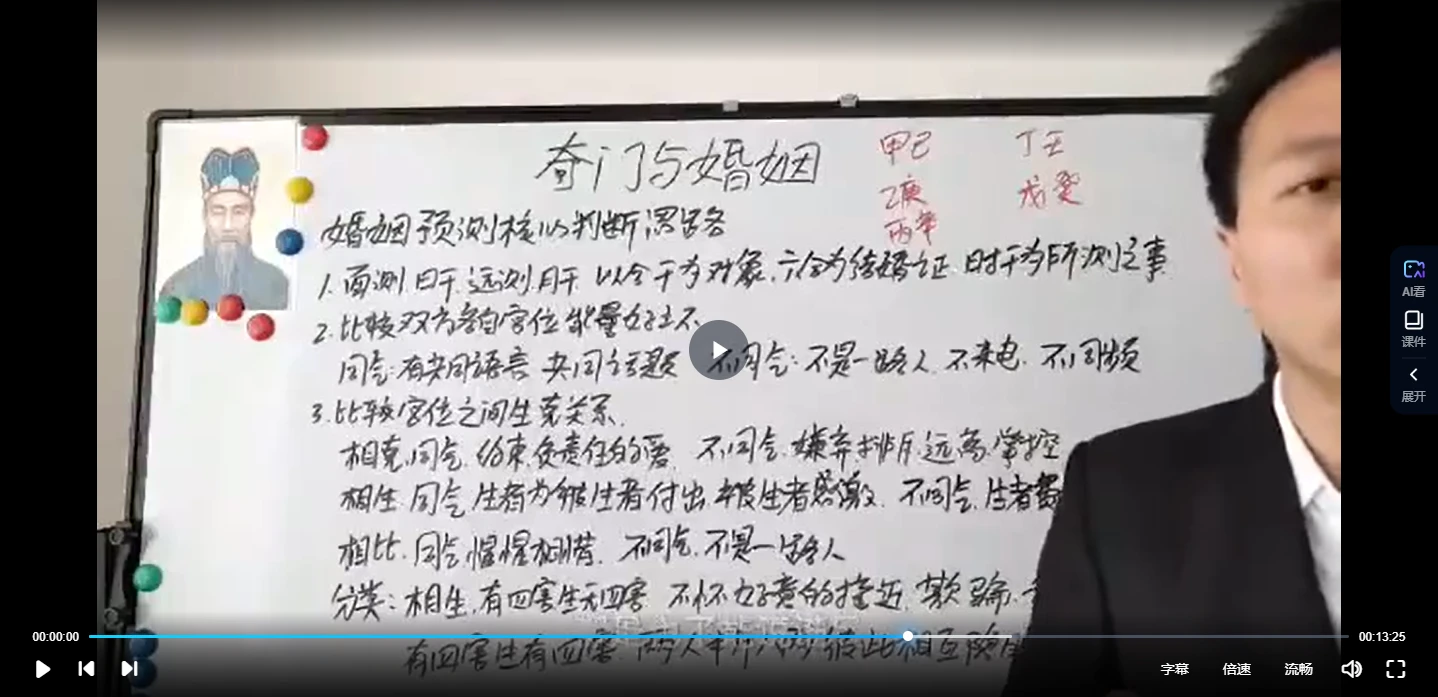 奇门与婚姻
甲己 丁壬
乙庚 戊癸
丙辛
婚姻预测核心判断思路
1. 面测.日干.远测.月干. 以合干为对象.六合为结婚证.时干为所测之事
2. 比较双方各自宫位能量好与不
同气:有共同语言 共同话题 不同气:不是一路人.不来电.不同频
3. 比较宫位之间生克关系.
相克.同气.约束.负责任的爱. 不同气.嫌弃排斥.远离.掌控
相生.同气.生者为被生者付出.被生者感激. 不同气.生者
相比.同气.惺惺相惜. 不同气.不是一路人
分类:相生.有四害生无四害 不怀好意的接近.欺骗.
有四害生有四害. 两人 彼此相互
AI看
课件
展开
00:00:00 00:13:25
字幕 倍速 流畅